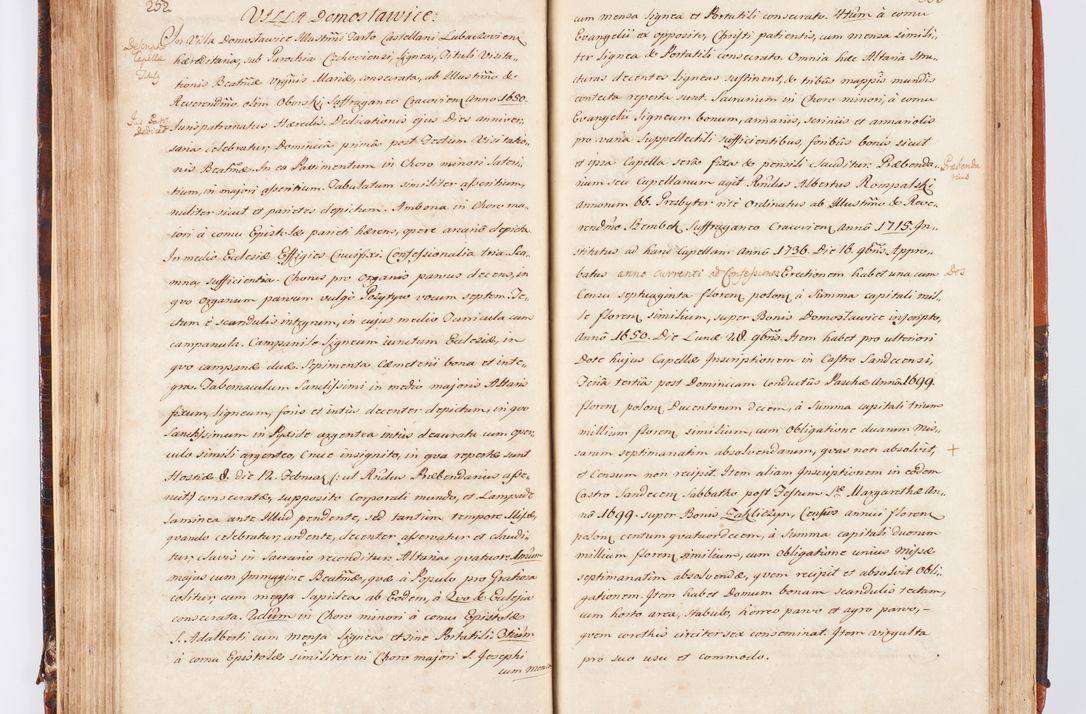 252
VILLA Domosławice:
In Villa Domosławice Illustrmi Tarło Castellani Lubaczovien
Descriptio
Capella
Tituli
hæreditaria, sub Parochia Czchoviensi, lignea, Tituli Visita-
tionis Beatmæ Virginis Mariæ, consecrata, ab Illustrmo &
Reverendmo olim Oborski Suffraganeo Cracovien Anno 1650.
Jus Patr.
Dedicat.
Jurispatronatus Hæredis. Dedicationis ejus Dies anniver-
saria celebratur, Dominica prima post Festum Visitatio-
nis Beatmæ. In ea Pavimentum in Choro minori lateri-
tium, in majori asseritium. Tabulatum similiter asseritium,
nuliter sicut et parietes depictum. Ambona in Choro ma-
iori à cornu Epistolæ parieti hærens, opere arcario depicta
In medio Ecclesiæ Effigies Crucifixi. Confessionalia tria. Sca-
mna sufficientia. Chorus pro organis parvus decens, in
qvo organum parvum vulgo Pozytyw vocum septem. Te-
ctum è scandulis integrum, in cujus medio Turricula cum
campanula. Campanile ligneum iunctum Ecclesiæ, in
qvo campanæ duæ. Sepimenta Cæmeterii bona et inte-
gra. Tabernaculum Sanctissimi in medio majoris Altaris
fixum, ligneum, foris et intùs decenter depictum, in qvo
Sanctissimum in Pyxide argentea intus deaurata cum oper-
culo simili argenteo, Cruce insignito, in qva repertæ sunt
Hostiæ 8. die 12. Februar (: ut Rndus Præbendarius asse-
ruit:) consecratæ, supposito Corporali mundo, et Lampade
laminea ante Illud pendente, sed tantùm tempore Missæ,
qvando celebratur, ardente, decenter asservatur et claudi-
tur, clavis in Sacrario reconditur. Altaria qvatuor: Unum
majus cum Immagine Beatmæ, qvæ à Populo pro Gratiosa
colitur, cum mensa lapidea ab Eodem, à Qvo & Ecclesia
consecrata. 2dum in Choro minori à cornu Epistolæ
S. Adalberti cum mensa lignea et sine Portatili. 3tium
à cornu Epistolæ similiter in Choro majori S. Josephi
cum mensa
cum mensa lignea et Portatili consecrato. 4tum à cornu
Evangelii ex opposito, Christi patientis, cum mensa simili-
ter lignea & Portatili consecrato. Omnia hæc Altaria stru-
cturas decentes ligneas sustinent, & tribus mappis mundis
contecta reperta sunt. Sacrarium in Choro minori, à cornu
Evangelii ligneum bonum, armariis, scriniis et armariolis
pro varia Suppellectili sufficientibus, foribus bonis sicut
et ipsa Capella serâ fixa & pensili clauditur. Præbenda-
Præbenda
rius
rium seu Capellanum agit Rndus Albertus Rompalski
annorum 66. Presbyter ritè Ordinatus ab Illustrmo & Reve-
rendmo Szembek Suffraganeo Cracovien Anno 1715. In-
stitutus ad hanc Capellam Anno 1736. Die 16. 9bris. Appro-
batus anno currenti ad Confessiones Erectionem habet una cum
Dos
Censu septuaginta floren polon à Summa capitali mil-
le floren similium, super Bonis Domosławice inscripto,
Anno 1650. Die Lunæ 28. 9bris. Item habet pro ulteriori
Dote hujus Capellæ Inscriptionem in Castro Sandecensi,
Feria tertia post Dominicam Conductûs Paschæ Anno 1699
floren polon Ducentorum decem, à Summa capitali trium
millium floren similium, cum obligatione duarum Mis-
sarum septimanatim absolvendarum, qvas non absolvit,
+
et Censum non recipit. Item aliam Inscriptionem in eodem
Castro Sandecen Sabbatho post Festum Stæ Margarethæ An-
nô 1699. super Bonis Zakliczyn, Censûs annui floren
polon centum qvatuordecem, à Summa capitali duorum
millium floren similium, cum obligatione unius Missæ
septimanatim absolvendæ, qvem recipit et absolvit obli-
gationem. Item habet Domum bonam scandulis tectam,
cum horto area, stabulo, horreo parvo et agro parvo,
qvem corethis circiter sex conseminat. Item virgulta
pro suo usu et commodo.